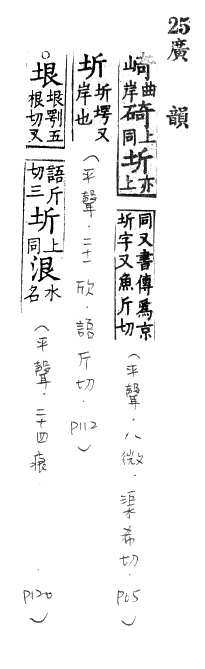 25廣韻
崎曲岸碕上同圻亦上
同又書傳爲京圻字又魚斤切（平聲．八微．渠希切．P65）
圻圻堮又岸也（平聲．二十一欣．語斤切．P112）
○垠垠㖾五根切又
語斤切三圻上同泿水名（平聲．二十四痕．P120）